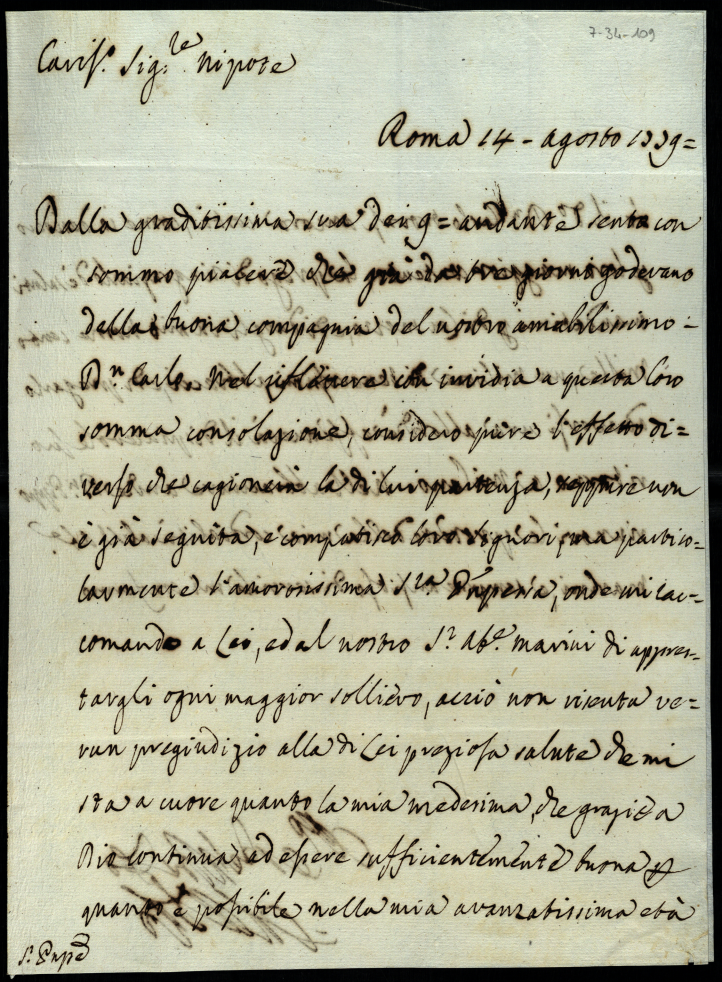 7-34-109
Cariss.º Sig.re Nipote
Roma 14 - Agosto 1779=
Dalla graditissima sua dei 9= andante sento con
sommo piacere che già da tre giorni godevano
della buona compagnia del nostro amabilissimo
Dn Carlo. Nel riflettere con invidia a questa loro
somma consolazione, considero pure l'effetto di=
verso che cagionerà la di lui partenza, seppure non
è già seguita, e compatisco loro Signori, ma partico=
larmente l'amorosissima S.ra, onde mi rac=
comando a Lei, ed al nostro S.r Ab.e Marini di appres=
targli ogni maggior sollievo, acciò non risenta ve=
run pregiudizio alla di Lei preziosa salute che mi
sta a cuore quanto la mia medesima, che grazie a
Dio continua ad essere sufficientemente buona p
quanto è possibile nella mia avanzatissima età